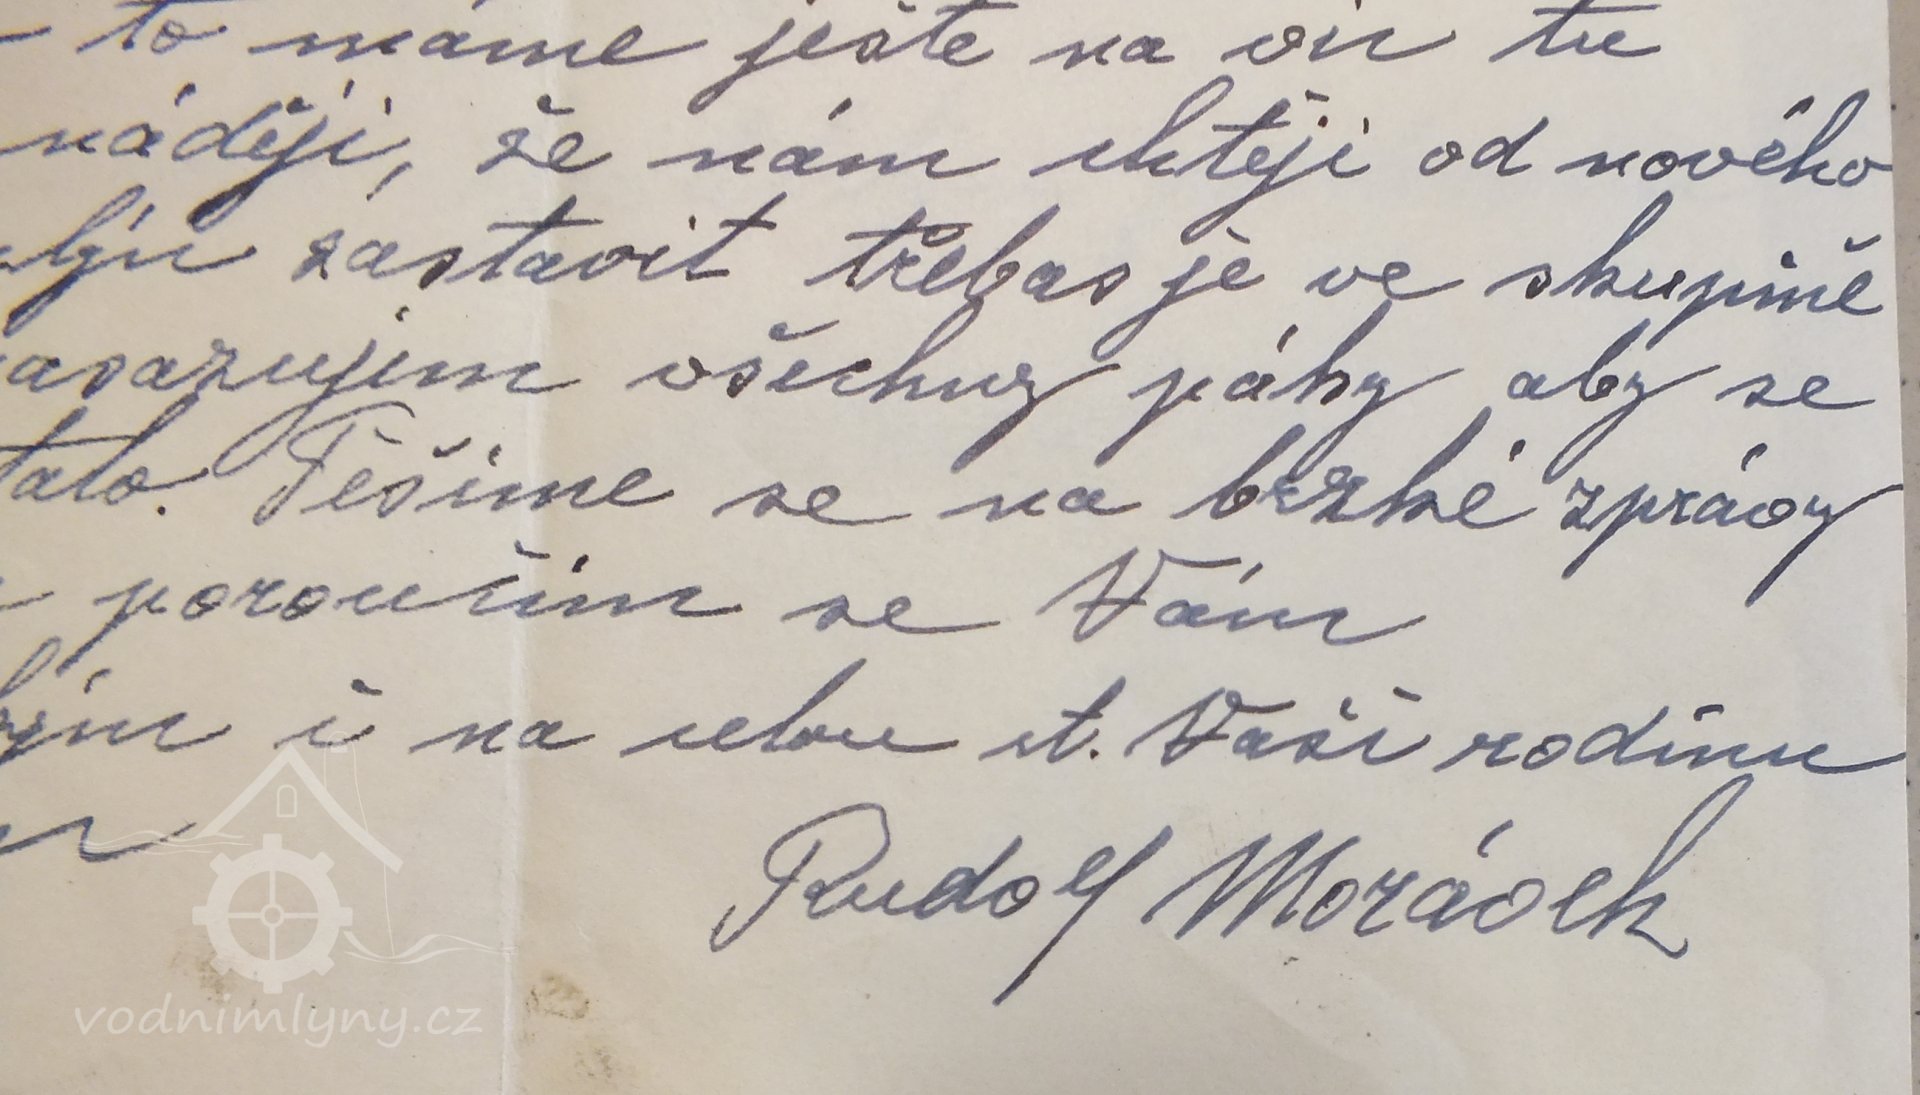 to máme ještě na vůli tu
náději, že nám chtějí od nového
zastavit třebas je ve skupině
všechny páky aby se
Těšíme se na brzké zprávy
poroučím se Vám
i na celou ct. Vaší rodinu
Rudolf Morávek
vodnimlyny.cz